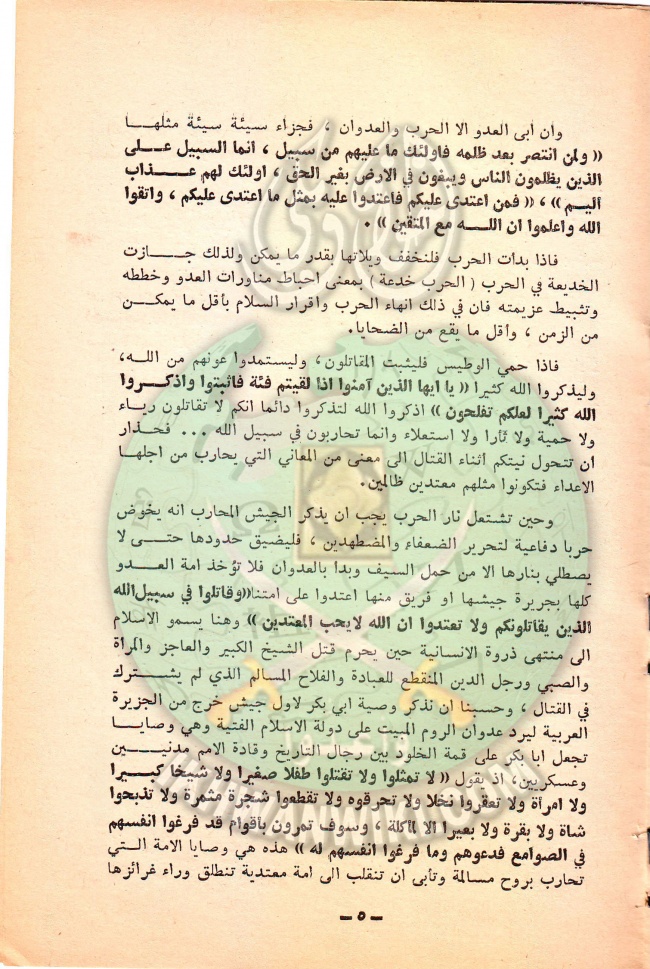 وان ابى العدو الا الحرب والعدوان ، فجزاء سيئة سيئة مثلهـا
(( ولمن انتصر بعد ظلمه فاولئك ما عليهم من سبيل ، انما السبيل عـلى
الذين يظلمون الناس ويبغون في الارض بغير الحق ، اولئك لهم عـــذاب
اليـم )) ، (( فمن اعتدى عليكم فاعتدوا عليه بمثل ما اعتدى عليكم ، واتقوا
الله واعلموا ان اللــه مع المتقين )) .
فاذا بدات الحرب فلنخفف ويلاتها بقدر ما يمكن ولذلك جـــازت
الخديعة في الحرب ( الحرب خدعة ) بمعنى احباط مناورات العدو وخططه
وتثبيط عزيمته فان في ذلك انهاء الحرب واقرار السلام بأقل ما يمكـــن
من الزمن ، وأقل ما يقع من الضحايا.
فاذا حمي الوطيس فليثبت المقاتلون، وليستمدوا عونهم من اللـه،
وليذكروا الله كثيرا (( يا ايها الذين آمنوا اذا لقيتم فئة فاثبتوا واذكــروا
الله كثيرا لعلكم تفلحون )) اذكروا الله لتذكروا دائما انكم لا تقاتلون رياء
ولا حمية ولا ثأرا ولا استعلاء وانما تحاربون في سبيل الله ... فحـذار
ان تتحول نيتكم أثناء القتال الى معنى من المعاني التي يحارب من اجلهـا
الاعداء فتكونوا مثلهم معتدين ظالمين.
وحين تشتعل نار الحرب يجب ان يذكر الجيش المحارب انه يخوض
حربا دفاعية لتحرير الضعفاء والمضطهدين ، فليضيق حدودها حتــى لا
يصطلي بنارها الا من حمل السيف وبدا بالعدوان فلا تؤخذ امة العــدو
كلها بجريرة جيشها او فريق منها اعتدوا على امتنا((وقاتلوا في سبيل الله
الذين يقاتلونكم ولا تعتدوا ان الله لايحب المعتدين )) وهنا يسمو الاسلام
الى منتهى ذروة الانسانية حين يحرم قتل الشيخ الكبير والعاجز والمرأة
والصبي ورجل الدين المنقطع للعبادة والفلاح المسالم الذي لم يشــترك
في القتال ، وحسبنا ان نذكر وصية ابي بكر لاول جيش خرج من الجزيرة
العربية ليرد عدوان الروم المبيت على دولة الاسلام الفتية وهي وصايـا
تجعل ابا بكر على قمة الخلود بين رجال التاريخ وقادة الامم مدنيـــين
وعسكريين، اذ يقول (( لا تمثلوا ولا تقتلوا طفلا صغيرا ولا شيخا كبـيرا
ولا امرأة ولا تعقروا نخلا ولا تحرقوه ولا تقطعوا شجرة مثمرة ولا تذبحوا
شاة ولا بقرة ولا بعيرا الا لمأكلة ، وسوف تمرون بأقوام قد فرغوا انفسهم
في الصوامع فدعوهم وما فرغوا انفسهم له )) هذه هي وصايا الامة التـي
تحارب بروح مسالمة وتأبى ان تنقلب الى امة معتدية تنطلق وراء غرائزها
ـ ٥ ـ